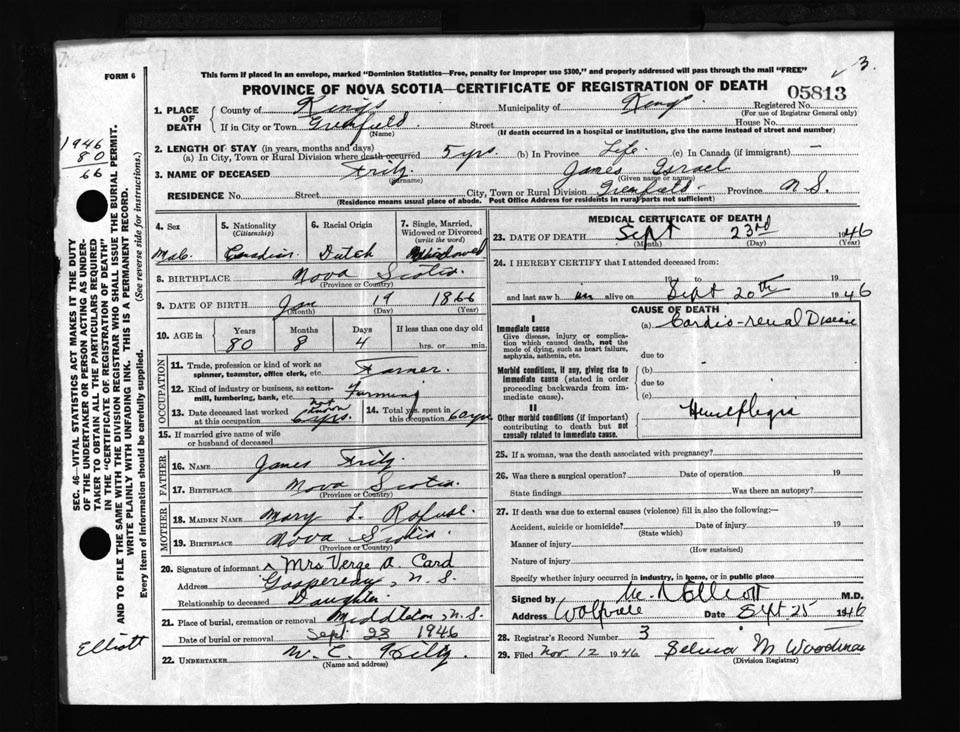 FORM 6
This form if placed in an envelope, marked "Dominion Statistics—Free, penalty for improper use $300," and properly addressed will pass through the mail "FREE"
3.
PROVINCE OF NOVA SCOTIA—CERTIFICATE OF REGISTRATION OF DEATH
05813
1. PLACE OF DEATH { County of Kings Municipality of Kings Registered No.
(For use of Registrar General only)
If in City or Town Greenfield Street House No.
(Name) (If death occurred in a hospital or institution, give the name instead of street and number)
2. LENGTH OF STAY (in years, months and days)
(a) In City, Town or Rural Division where death occurred 5 yrs. (b) In Province Life. (c) In Canada (if immigrant) —
3. NAME OF DECEASED Fritz James Israel
(Surname) (Given name or names)
RESIDENCE No. Street City, Town or Rural Division Greenfield Province N.S.
(Residence means usual place of abode. Post Office Address for residents in rural parts not sufficient)
4. Sex 5. Nationality (Citizenship) 6. Racial Origin 7. Single, Married, Widowed or Divorced (write the word)
Male. Canadian Dutch Widowed
8. BIRTHPLACE Nova Scotia.
(Province or Country)
9. DATE OF BIRTH Jan 19 1866
(Month) (Day) (Year)
10. AGE in Years Months Days If less than one day old
80 8 4 hrs. or min.
OCCUPATION
11. Trade, profession or kind of work as spinner, teamster, office clerk, etc. Farmer.
12. Kind of industry or business, as cotton-mill, lumbering, bank, etc. Farming
13. Date deceased last worked at this occupation not known 6 yrs. 14. Total yrs. spent in this occupation 60 yrs
15. If married give name of wife or husband of deceased
FATHER
16. NAME James Fritz.
17. BIRTHPLACE Nova Scotia.
(Province or Country)
MOTHER
18. MAIDEN NAME Mary L. Rafuse.
19. BIRTHPLACE Nova Scotia
(Province or Country)
20. Signature of informant Mrs Verge A. Card
Address Gaspereau, N.S.
Relationship to deceased Daughter
21. Place of burial, cremation or removal Middleton, N.S.
Date of burial or removal Sept. 28 1946
22. UNDERTAKER W. C. Hiltz.
(Name and address)
MEDICAL CERTIFICATE OF DEATH
23. DATE OF DEATH Sept 23rd 1946
(Month) (Day) (Year)
24. I HEREBY CERTIFY that I attended deceased from:
19 to 19
and last saw h im alive on Sept 20th 1946
CAUSE OF DEATH
I
Immediate cause (a) Cardio-renal Disease
Give disease, injury or complication which caused death, not the mode of dying, such as heart failure, asphyxia, asthenia, etc.
due to
Morbid conditions, if any, giving rise to immediate cause (stated in order proceeding backwards from immediate cause).
(b)
due to
(c)
II
Other morbid conditions (if important) contributing to death but not causally related to immediate cause.
Hemiplegia
25. If a woman, was the death associated with pregnancy?
26. Was there a surgical operation? Date of operation 19
State findings Was there an autopsy?
27. If death was due to external causes (violence) fill in also the following:—
Accident, suicide or homicide? Date of injury 19
(State which)
Manner of injury
(How sustained)
Nature of injury
Specify whether injury occurred in industry, in home, or in public place
Signed by Elliott M.D.
Address Wolfville Date Sept 25 1946
28. Registrar's Record Number 3
29. Filed Nov 12 1946 Selina M Woodman
(Division Registrar)
SEC. 46—VITAL STATISTICS ACT MAKES IT THE DUTY
OF THE UNDERTAKER OR PERSON ACTING AS UNDER-
TAKER TO OBTAIN ALL THE PARTICULARS REQUIRED
IN THE "CERTIFICATE OF REGISTRATION OF DEATH"
AND TO FILE THE SAME WITH THE DIVISION REGISTRAR WHO SHALL ISSUE THE BURIAL PERMIT.
WRITE PLAINLY WITH UNFADING INK. THIS IS A PERMANENT RECORD.
Every item of information should be carefully supplied. (See reverse side for instructions.)
1946
80
66
Elliott